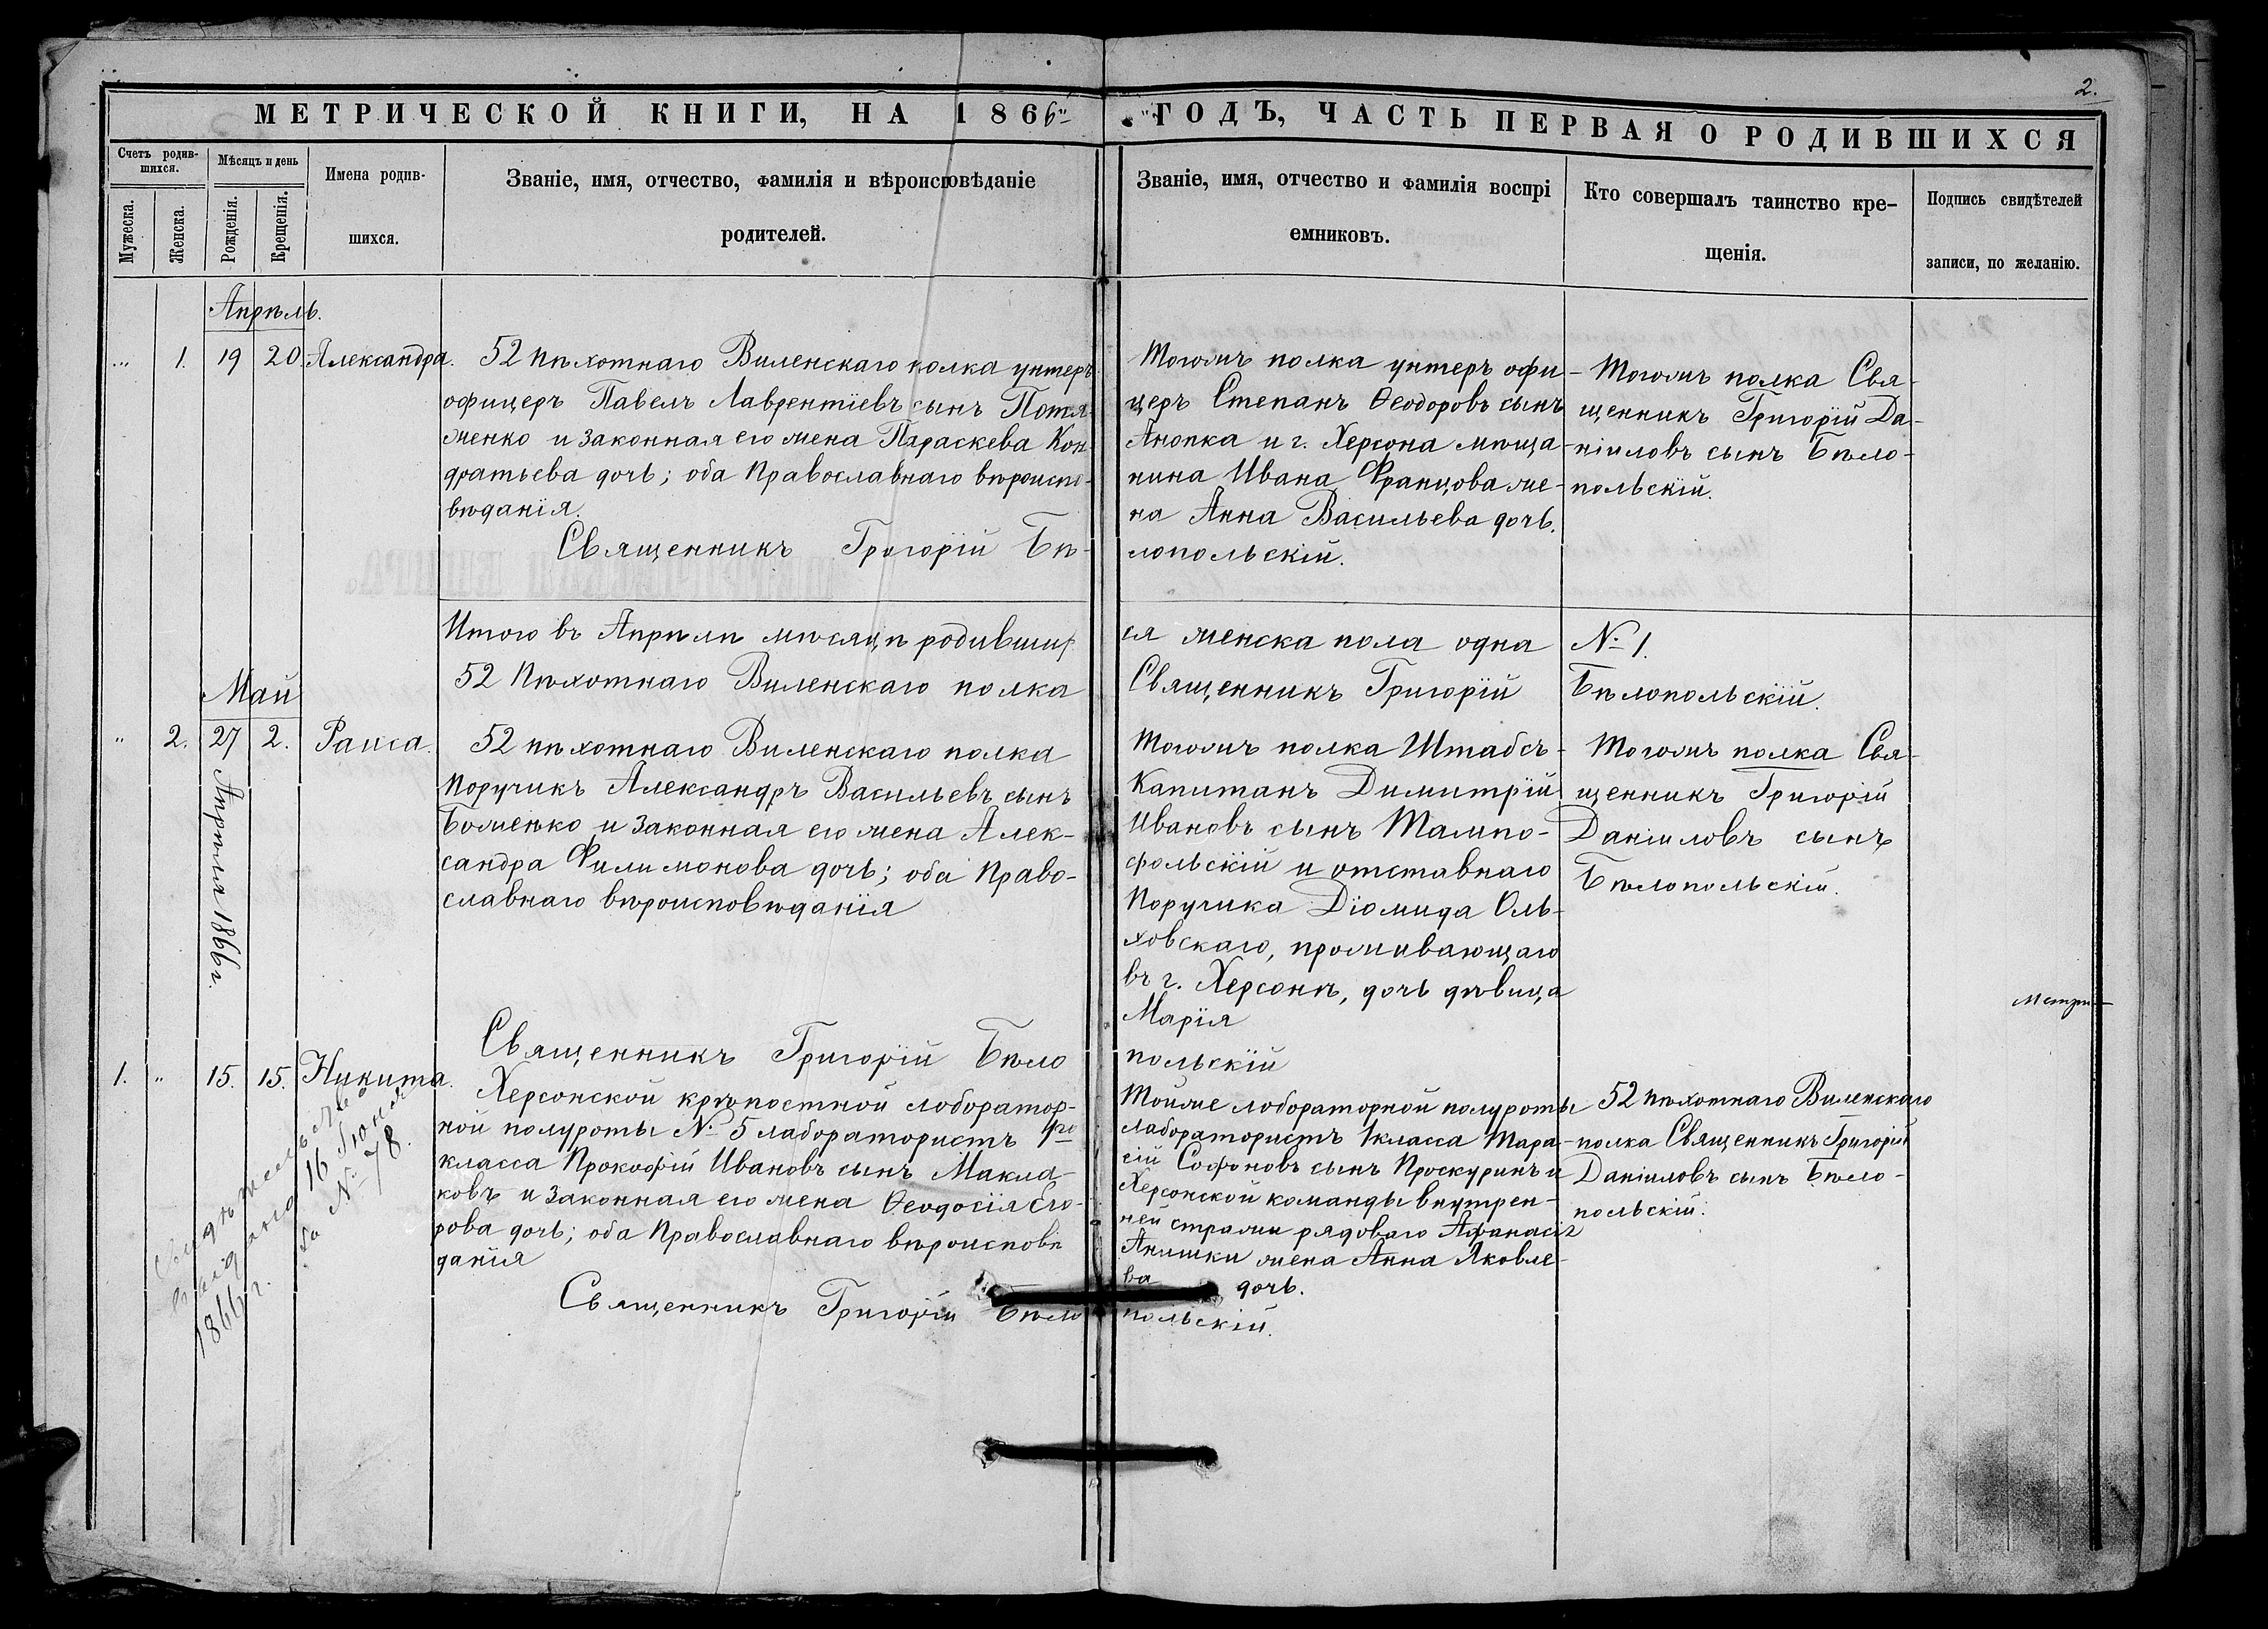 2.
МЕТРИЧЕСКОЙ КНИГИ, НА 1866й ГОДЪ, ЧАСТЬ ПЕРВАЯ О РОДИВШИХСЯ
Счетъ родив-
шихся.
Мужеска.
Женска.
Мѣсяцъ и день
Рожденія.
Крещенія.
Имена родив-
шихся.
Званіе, имя, отчество, фамилія и вѣроисповѣданіе
родителей.
Званіе, имя, отчество и фамилія воспрі
емниковъ.
Кто совершалъ таинство кре-
щенія.
Подпись свидѣтелей
записи, по желанію.
Апрѣль.
... 1. 19 20. Александра.
52 пѣхотнаго Виленскаго полка унтеръ
офицеръ Павелъ Лаврентіевъ сынъ Потя-
женко и законная его жена Параскева Кон-
дратьева дочь; оба Православнаго вѣроиспо-
вѣданія.
Тогожъ полка унтеръ офи-
церъ Степанъ Ѳеодоровъ сынъ
Анопка и г. Херсона мѣща-
нина Ивана Францова же-
на Анна Васильева дочь.
Тогожъ полка Свя-
щенникъ Григорій Да-
ніиловъ сынъ Бѣло-
польскій.
Священникъ Григорій Бѣ-
лопольскій.
Итого въ Апрѣлѣ мѣсяцѣ родивших
ся женска пола одна
№ 1.
52 Пѣхотнаго Виленскаго полка
Священникъ Григорій
Бѣлопольскій.
Май
" 2. 27 2. Раиса.
Апрѣля 1866 г.
52 пѣхотнаго Виленскаго полка
Поручикъ Александръ Васильевъ сынъ
Боженко и законная его жена Алек-
сандра Филимонова дочь; оба Право-
славнаго вѣроисповѣданія
Тогожъ полка Штабсъ-
Капитанъ Димитрій
Ивановъ сынъ Тампо-
фольскій и отставнаго
Поручика Діомида Оль-
ховскаго, проживающаго
въ г. Херсонѣ, дочь дѣвица
Марія
Тогожъ полка Свя-
щенникъ Григорій
Даніиловъ сынъ
Бѣлопольскій.
Метри
Священникъ Григорій Бѣло
польскій
1. " 15. 15. Никита.
Свидѣтельство
выдано 16 Іюня
1866 г. за № 78.
Херсонской крѣпостной лоборатор-
ной полуроты № 5 лаборатористъ 4го
класса Прокофій Ивановъ сынъ Макла-
ковъ и законная его жена Ѳеодосія Его-
рова дочь; оба Православнаго вѣроисповѣ
данія
Тойже лобораторной полуроты
лаборатористъ 1класса Тара-
сій Софоновъ сынъ Проскуринъ и
Херсонской команды внутрен-
ней стражи рядоваго Афанасія
Анишки жена Анна Яковле-
ва дочь.
52 пѣхотнаго Виленскаго
полка Священникъ Григорій
Даніиловъ сынъ Бѣло-
польскій.
Священникъ Григорій Бѣло
польскій.